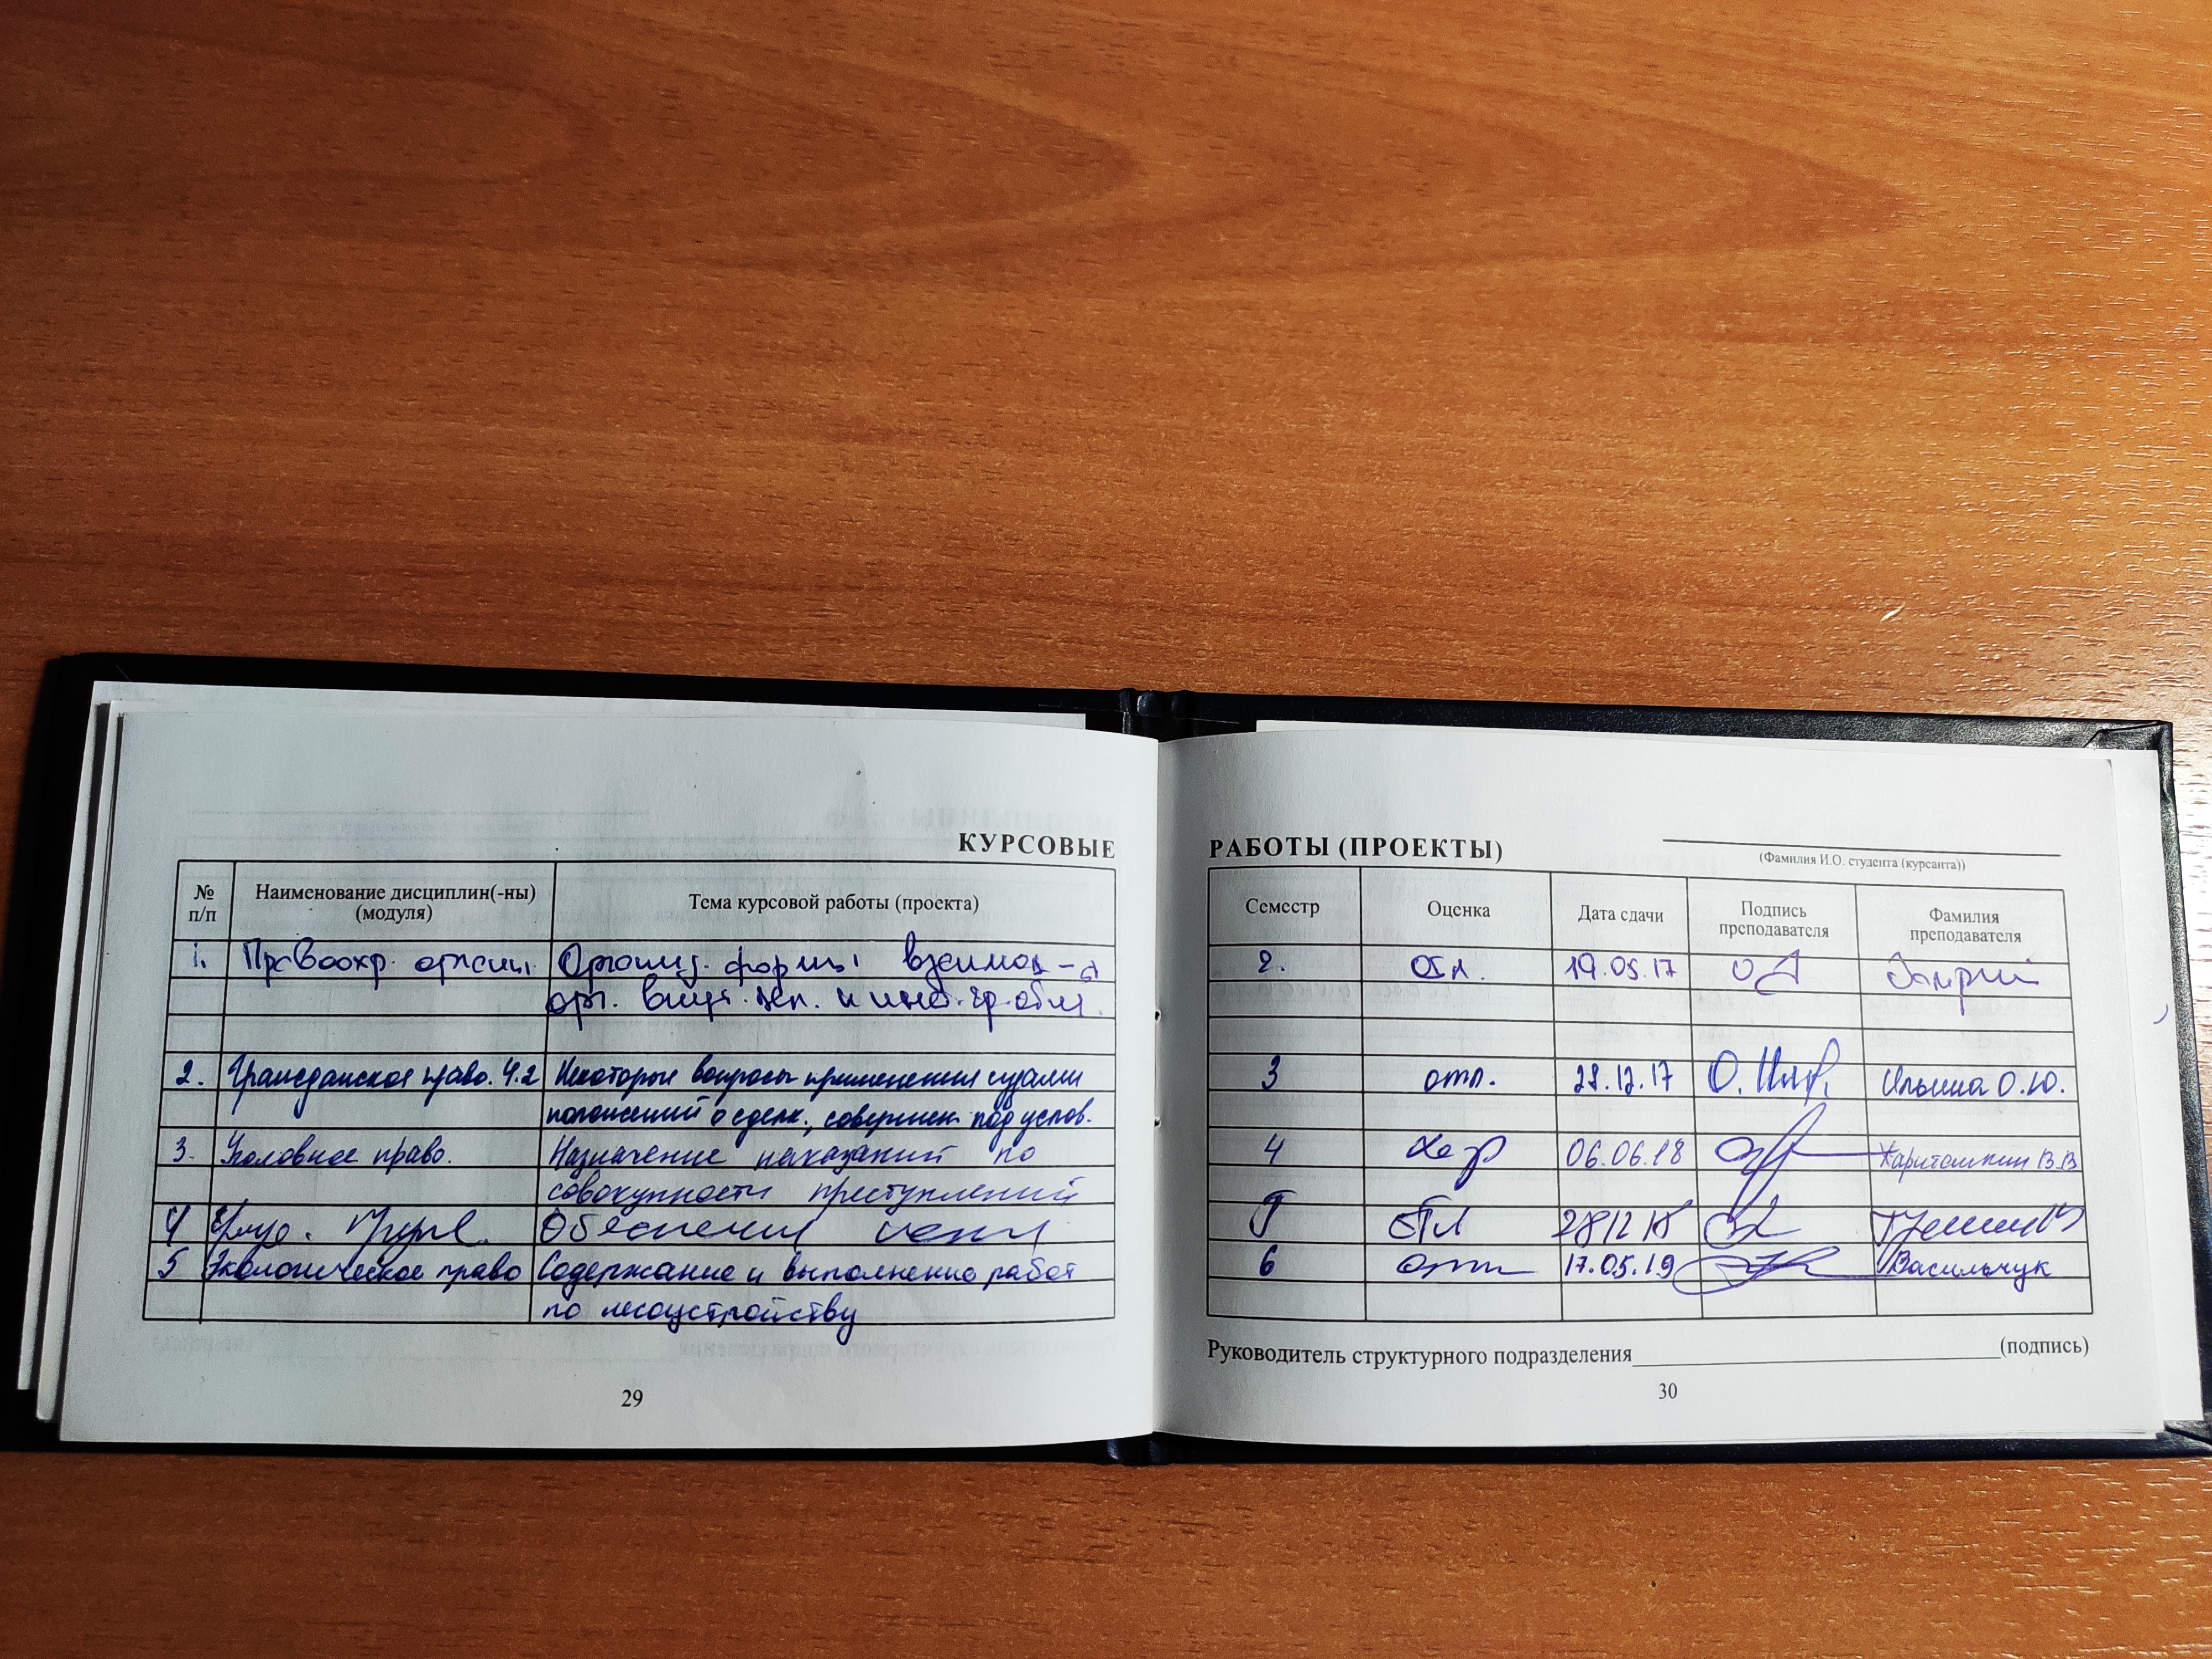 КУРСОВЫЕ
№ п/п
Наименование дисциплин(-ны) (модуля)
Тема курсовой работы (проекта)
1. Правоохр. органы Организ. формы взаимод-я
орг. внутр. дел. и инст. гр. общ.
2. Гражданское право. Ч.2 Некоторые вопросы применения судами
положений о сделк., совершен. под услов.
3. Уголовное право. Назначение наказаний по
совокупности преступлений
4
5 Экологическое право Содержание и выполнение работ
по лесоустройству
29
РАБОТЫ (ПРОЕКТЫ)
(Фамилия И.О. студента (курсанта))
Семестр
Оценка
Дата сдачи
Подпись преподавателя
Фамилия преподавателя
2. отл. 19.05.17
3 отл. 28.12.17 Ильина О.Ю.
4 хор 06.06.18 Харитошкин В.В
5 отл 28 12 18
6 отл 17.05.19 Васильчук
Руководитель структурного подразделения (подпись)
30